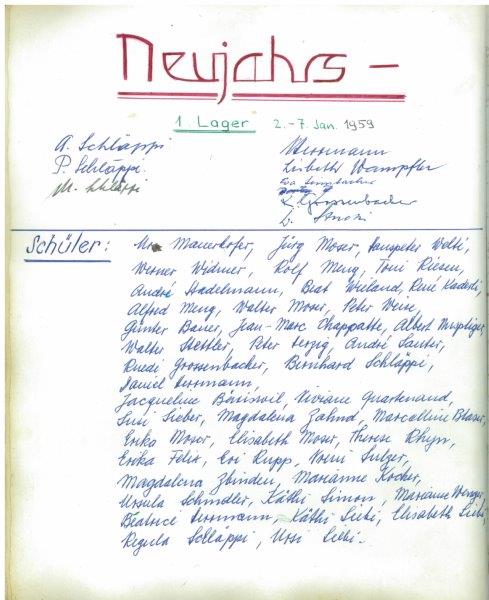 Neujahrs -
1. Lager 2. - 7. Jan. 1959
A. Schläppi
P. Schläppi
M. Schläppi
Herrmann
Lisbeth Wampfler
Schüler:
Mauerhofer, Jürg Moser, Hanspeter Welti,
Werner Widmer, Rolf Meng, Toni Riesen,
André Stadelmann, Beat Wieland, René
Alfred Meng, Walter Moser, Peter Weise,
Günter Bauer, Jean-Marc Chappatte, Albert
Walter Stettler, Peter Herzig, André Sauter,
Ruedi Grossenbacher, Bernhard Schläppi,
Daniel Herrmann,
Jacqueline Bäriswil, Viviane Quartenoud,
Susi Sieber, Magdalena Zahnd, Marcelline Blaser,
Erika Moser, Elisabeth Moser, Therese Rhyn,
Erika Felix, Evi Rupp, Vreni Sulger,
Magdalena Zbinden, Marianne Kocher,
Ursula Schindler, Käthi Simon, Marianne Wenger,
Beatrice Herrmann, Käthi Liebi, Elisabeth Liebi,
Regula Schläppi, Ursi Liebi.